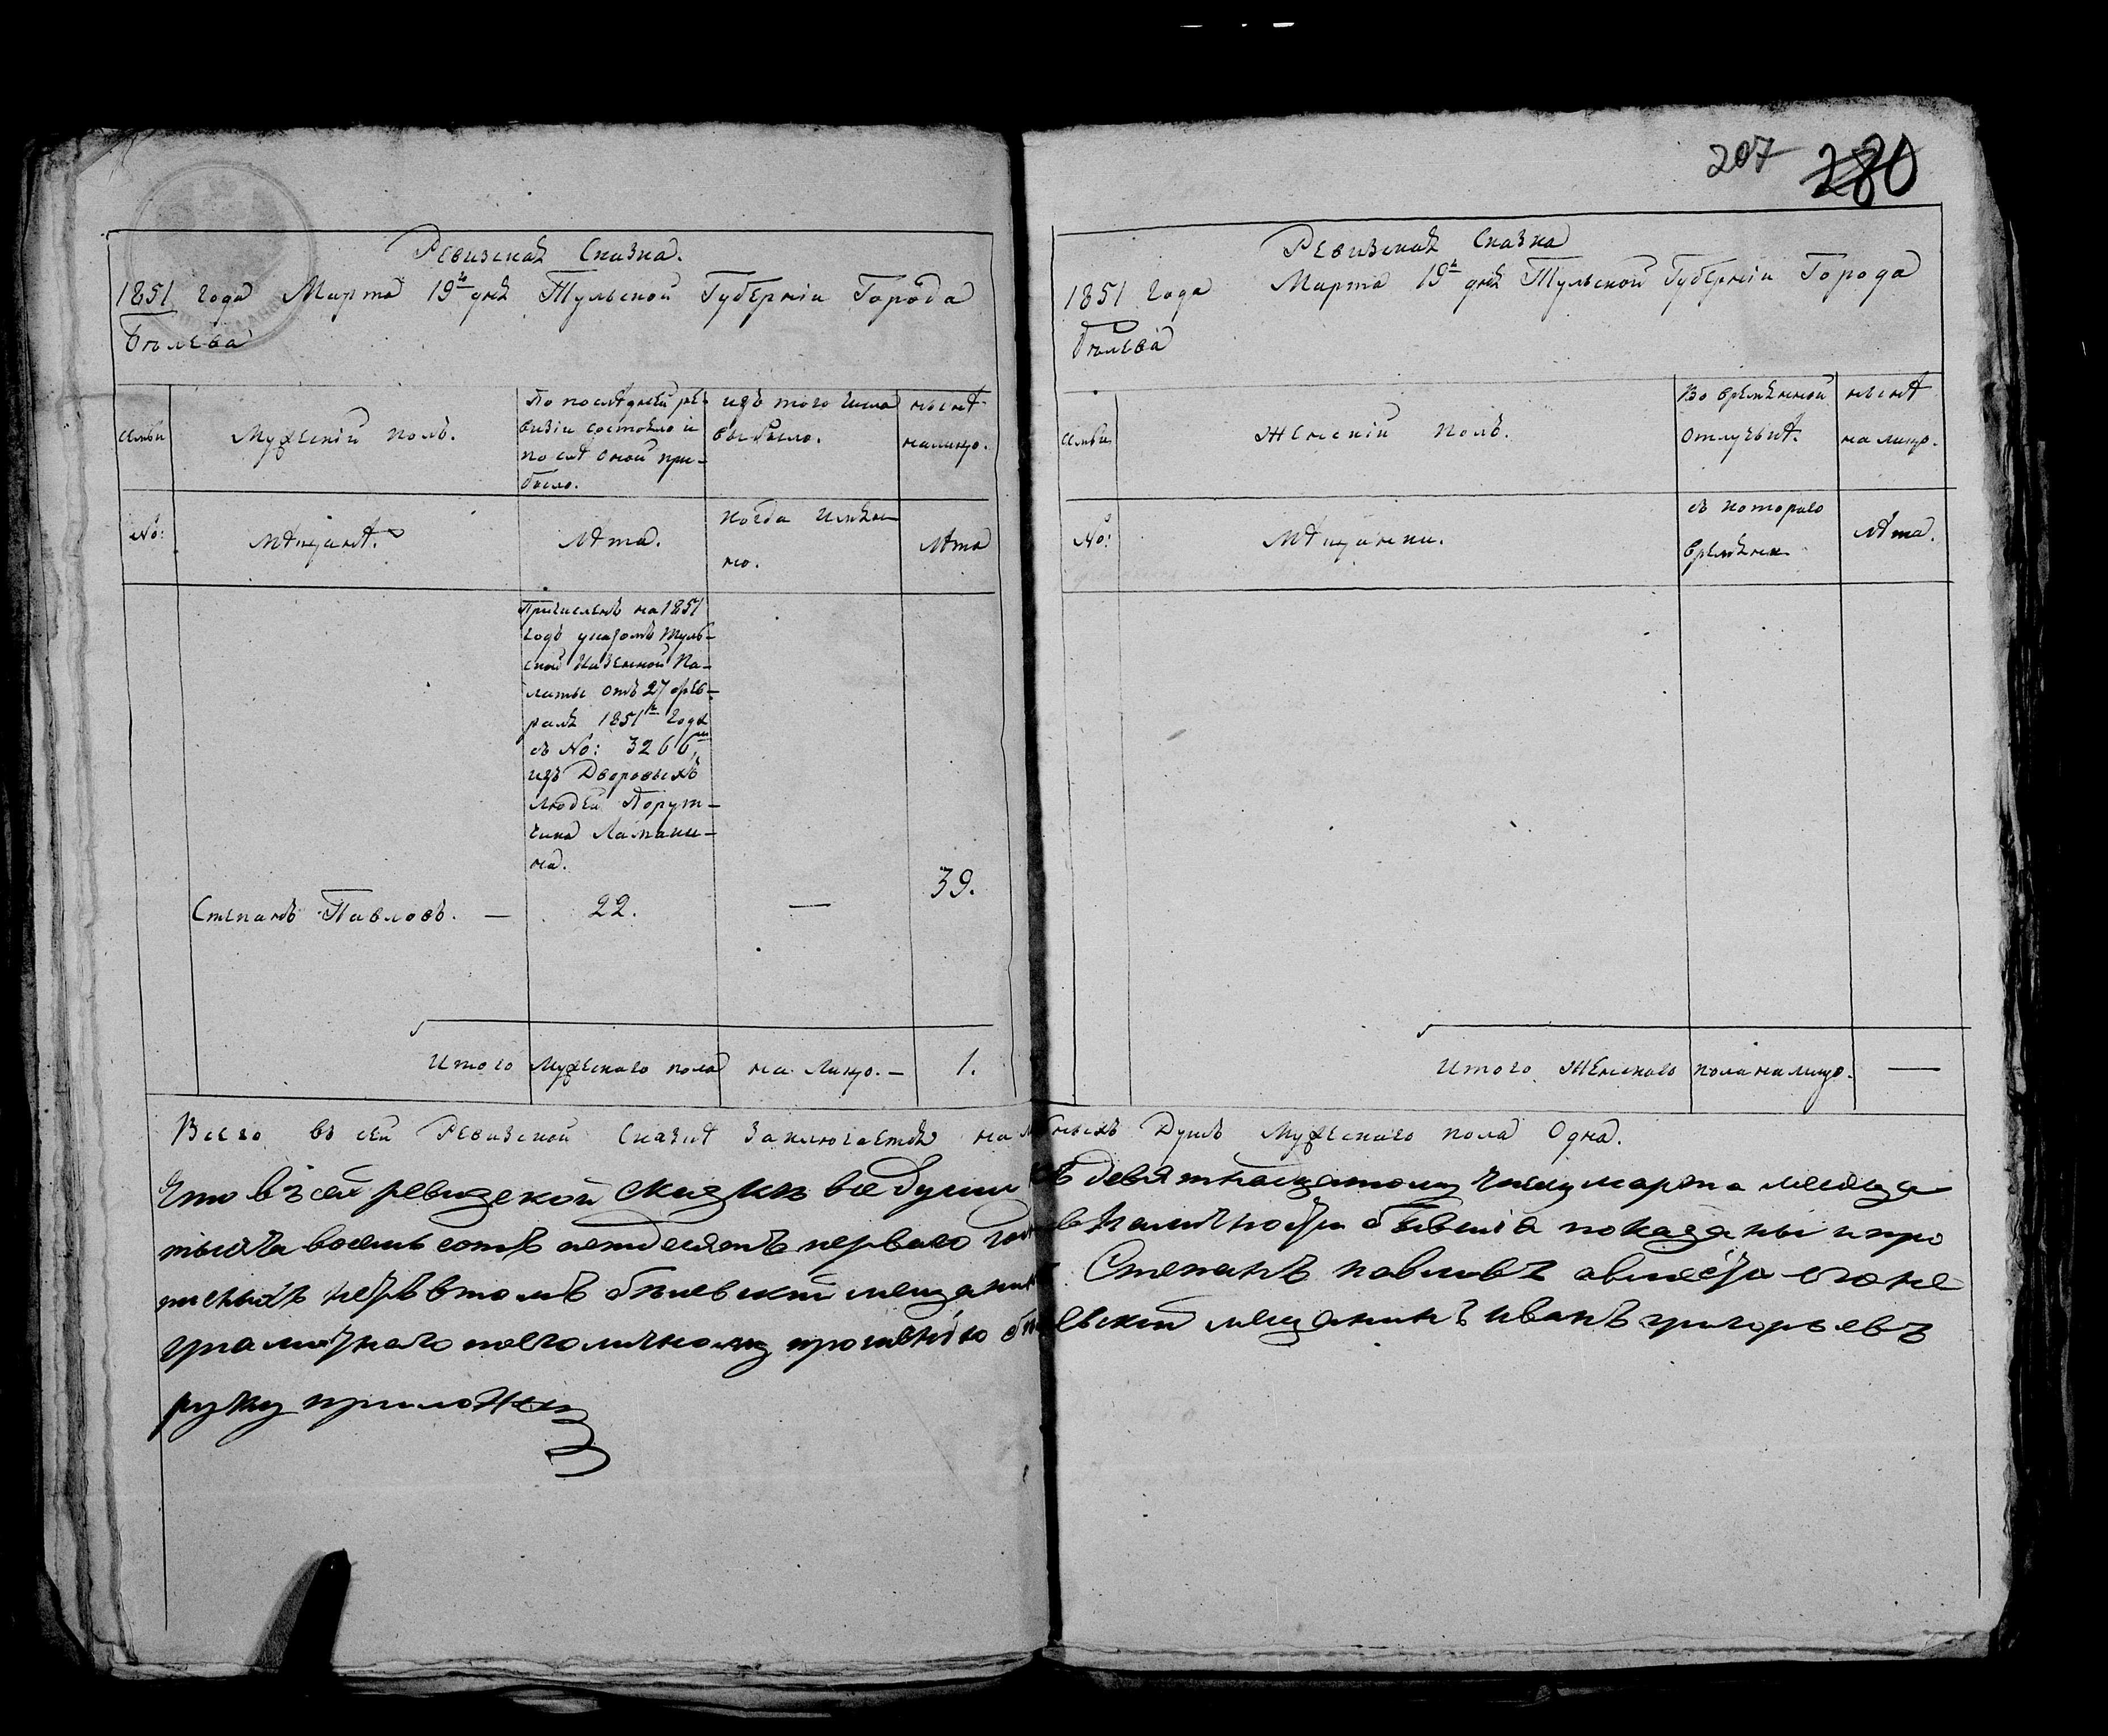 207 280
Ревизская Сказка.
1851 года Марта 19го дня Тульской Губерніи Города
Бѣлева
Семьи
Мужескій полъ.
По послѣдней ре-
визіи состояло и
послѣ оной при-
было.
изъ того числа
выбыло.
нынѣ
налицо.
№:
Мѣщанѣ.
Лѣта.
Когда имянно
но.
Лѣта
Причисленъ на 1851
годъ указомъ Туль-
ской Казенной Па-
латы отъ 27 Фев-
раля 1851го года
съ №: 3266мъ
изъ Дворовыхъ
людей Порут-
чика Лапани-
на.
Степанъ Павловъ. — 22. — 39.
Итого Мужескаго пола на лицо. — 1.
Ревизская Сказка
1851 Года Марта 19го дня Тульской Губерніи Города
Бѣлева
Семьи
Женскій Полъ.
Во временной
отлучкѣ.
нынѣ
на лицо.
№:
Мѣщанки.
съ котораго
времени
Лѣта.
Итого Женскаго пола на лицо. —
Всего въ сей Ревизской Сказкѣ Заключается наличныхъ Душъ Мужескаго пола Одна.
Что въ сей ревизской сказки все души къ девятнадцатому числу марта месяца
тысяча восемь сотъ петдесятъ первого года в наличности бывшіа показаны и про
писныхъ нетъ втомъ белевский мещанинъ Степанъ павловъ авместо его не
грамотнаго поего личному прошенію белевский мещанинъ иванъ григорьевъ
руку приложил